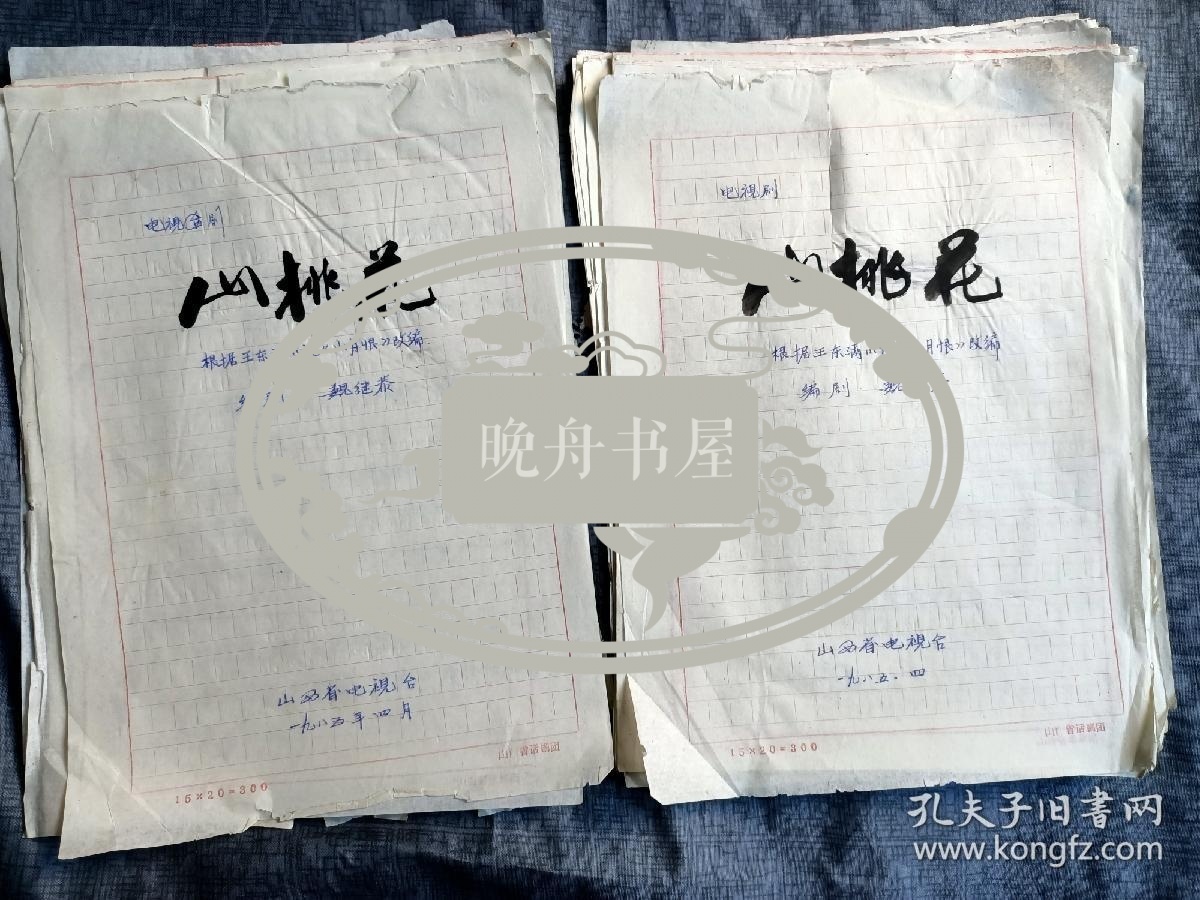 电视话剧
山桃花
根据王东满《 月恨》改编
魏继泰
山西省电视台
一九八五年四月
15×20=300
电视剧
山桃花
根据王东满《 月恨》改编
编剧 魏
山西省电视台
一九八五.四
15×20=300
晚舟书屋
孔夫子旧书网
www.kongfz.com